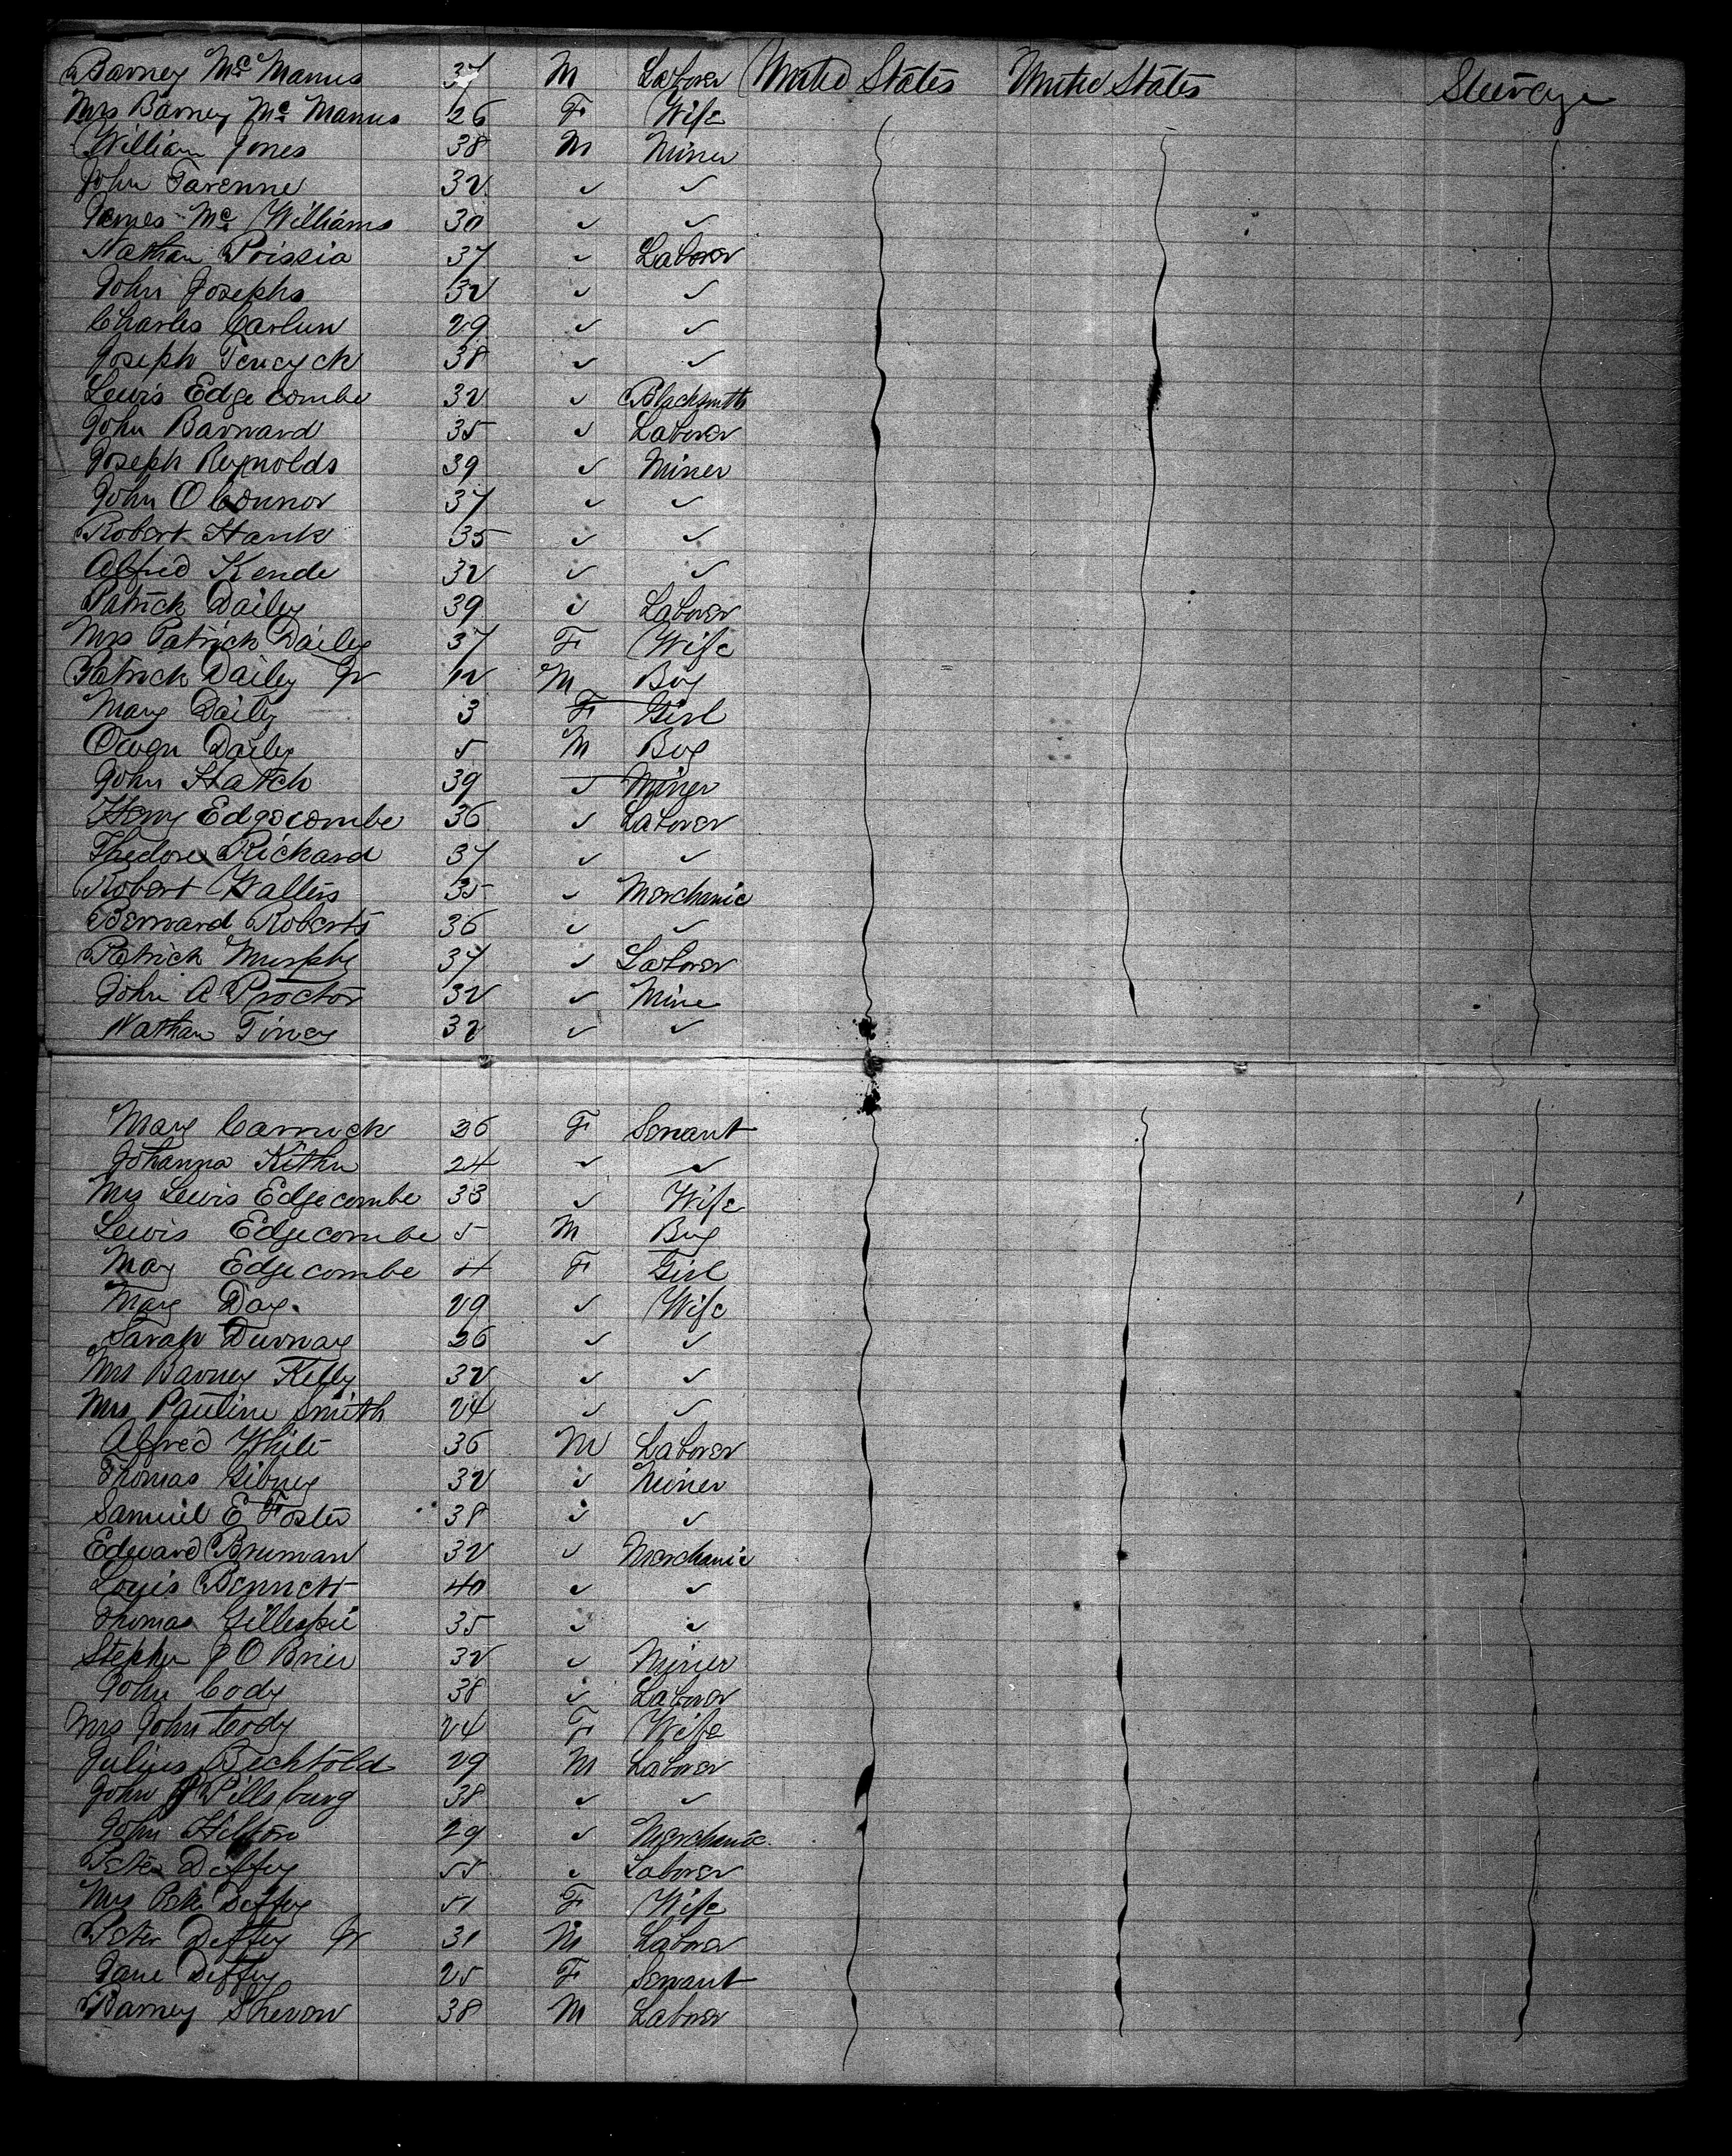 Barney Mc Manus 37 M Laborer United States United States Steerage
Mrs Barney Mc Manus 26 F Wife
William Jones 38 M Miner
John Tavenne 32 ✓ ✓
James Mc Williams 30 ✓ ✓
Nathan Prissia 37 ✓ Laborer
John Josephs 32 ✓ ✓
Charles Carlun 29 ✓ ✓
Joseph Teneyck 38 ✓ ✓
Lewis Edgecombe 32 ✓ Blacksmith
John Barnard 35 ✓ Laborer
Joseph Reynolds 39 ✓ Miner
John O Connor 37 ✓ ✓
Robert Hank 35 ✓ ✓
Alfred Kende 32 ✓ ✓
Patrick Dailey 39 ✓ Laborer
Mrs Patrick Dailey 37 F Wife
Patrick Dailey Jr 12 M Boy
Mary Dailey 3 F Girl
Owen Dailey 5 M Boy
John Hatch 39 ✓ Miner
Henry Edgecombe 36 ✓ Laborer
Thedore Richard 37 ✓ ✓
Robert Walters 35 ✓ Merchanic
Bernard Roberts 36 ✓ ✓
Patrick Murphy 37 ✓ Laborer
John A Proctor 32 ✓ Mine
Nathan 32 ✓ ✓
Mary Carrick 26 F Servant
Johanna 24 ✓ ✓
Mrs Lewis Edgecombe 33 ✓ Wife
Lewis Edgecombe 5 M Boy
May Edgecombe 4 F Girl
Mary Day. 29 ✓ Wife
Sarah Durnay 26 ✓ ✓
Mrs Barney Kelly 32 ✓ ✓
Mrs Pauline Smith 24 ✓ ✓
Alfred White 36 M Laborer
Thomas Gibney 32 ✓ Miner
Samuel E Foster 38 ✓ ✓
Edward Bruman 32 ✓ Merchanic
Louis Bennett 40 ✓ ✓
Thomas Gillespie 35 ✓ ✓
Stephen J O Brien 32 ✓ Miner
John Cody 38 ✓ Laborer
Mrs John Cody 24 F Wife
Julius Bechtold 29 M Laborer
John P Pillsburg 38 ✓ ✓
John Hilton 29 ✓ Merchanic
Peter Deffey 55 ✓ Laborer
Mrs Peter Deffey 51 F Wife
Peter Deffey Jr 31 M Laborer
Jane Deffey 25 F Servant
Barney Shevon 38 M Laborer